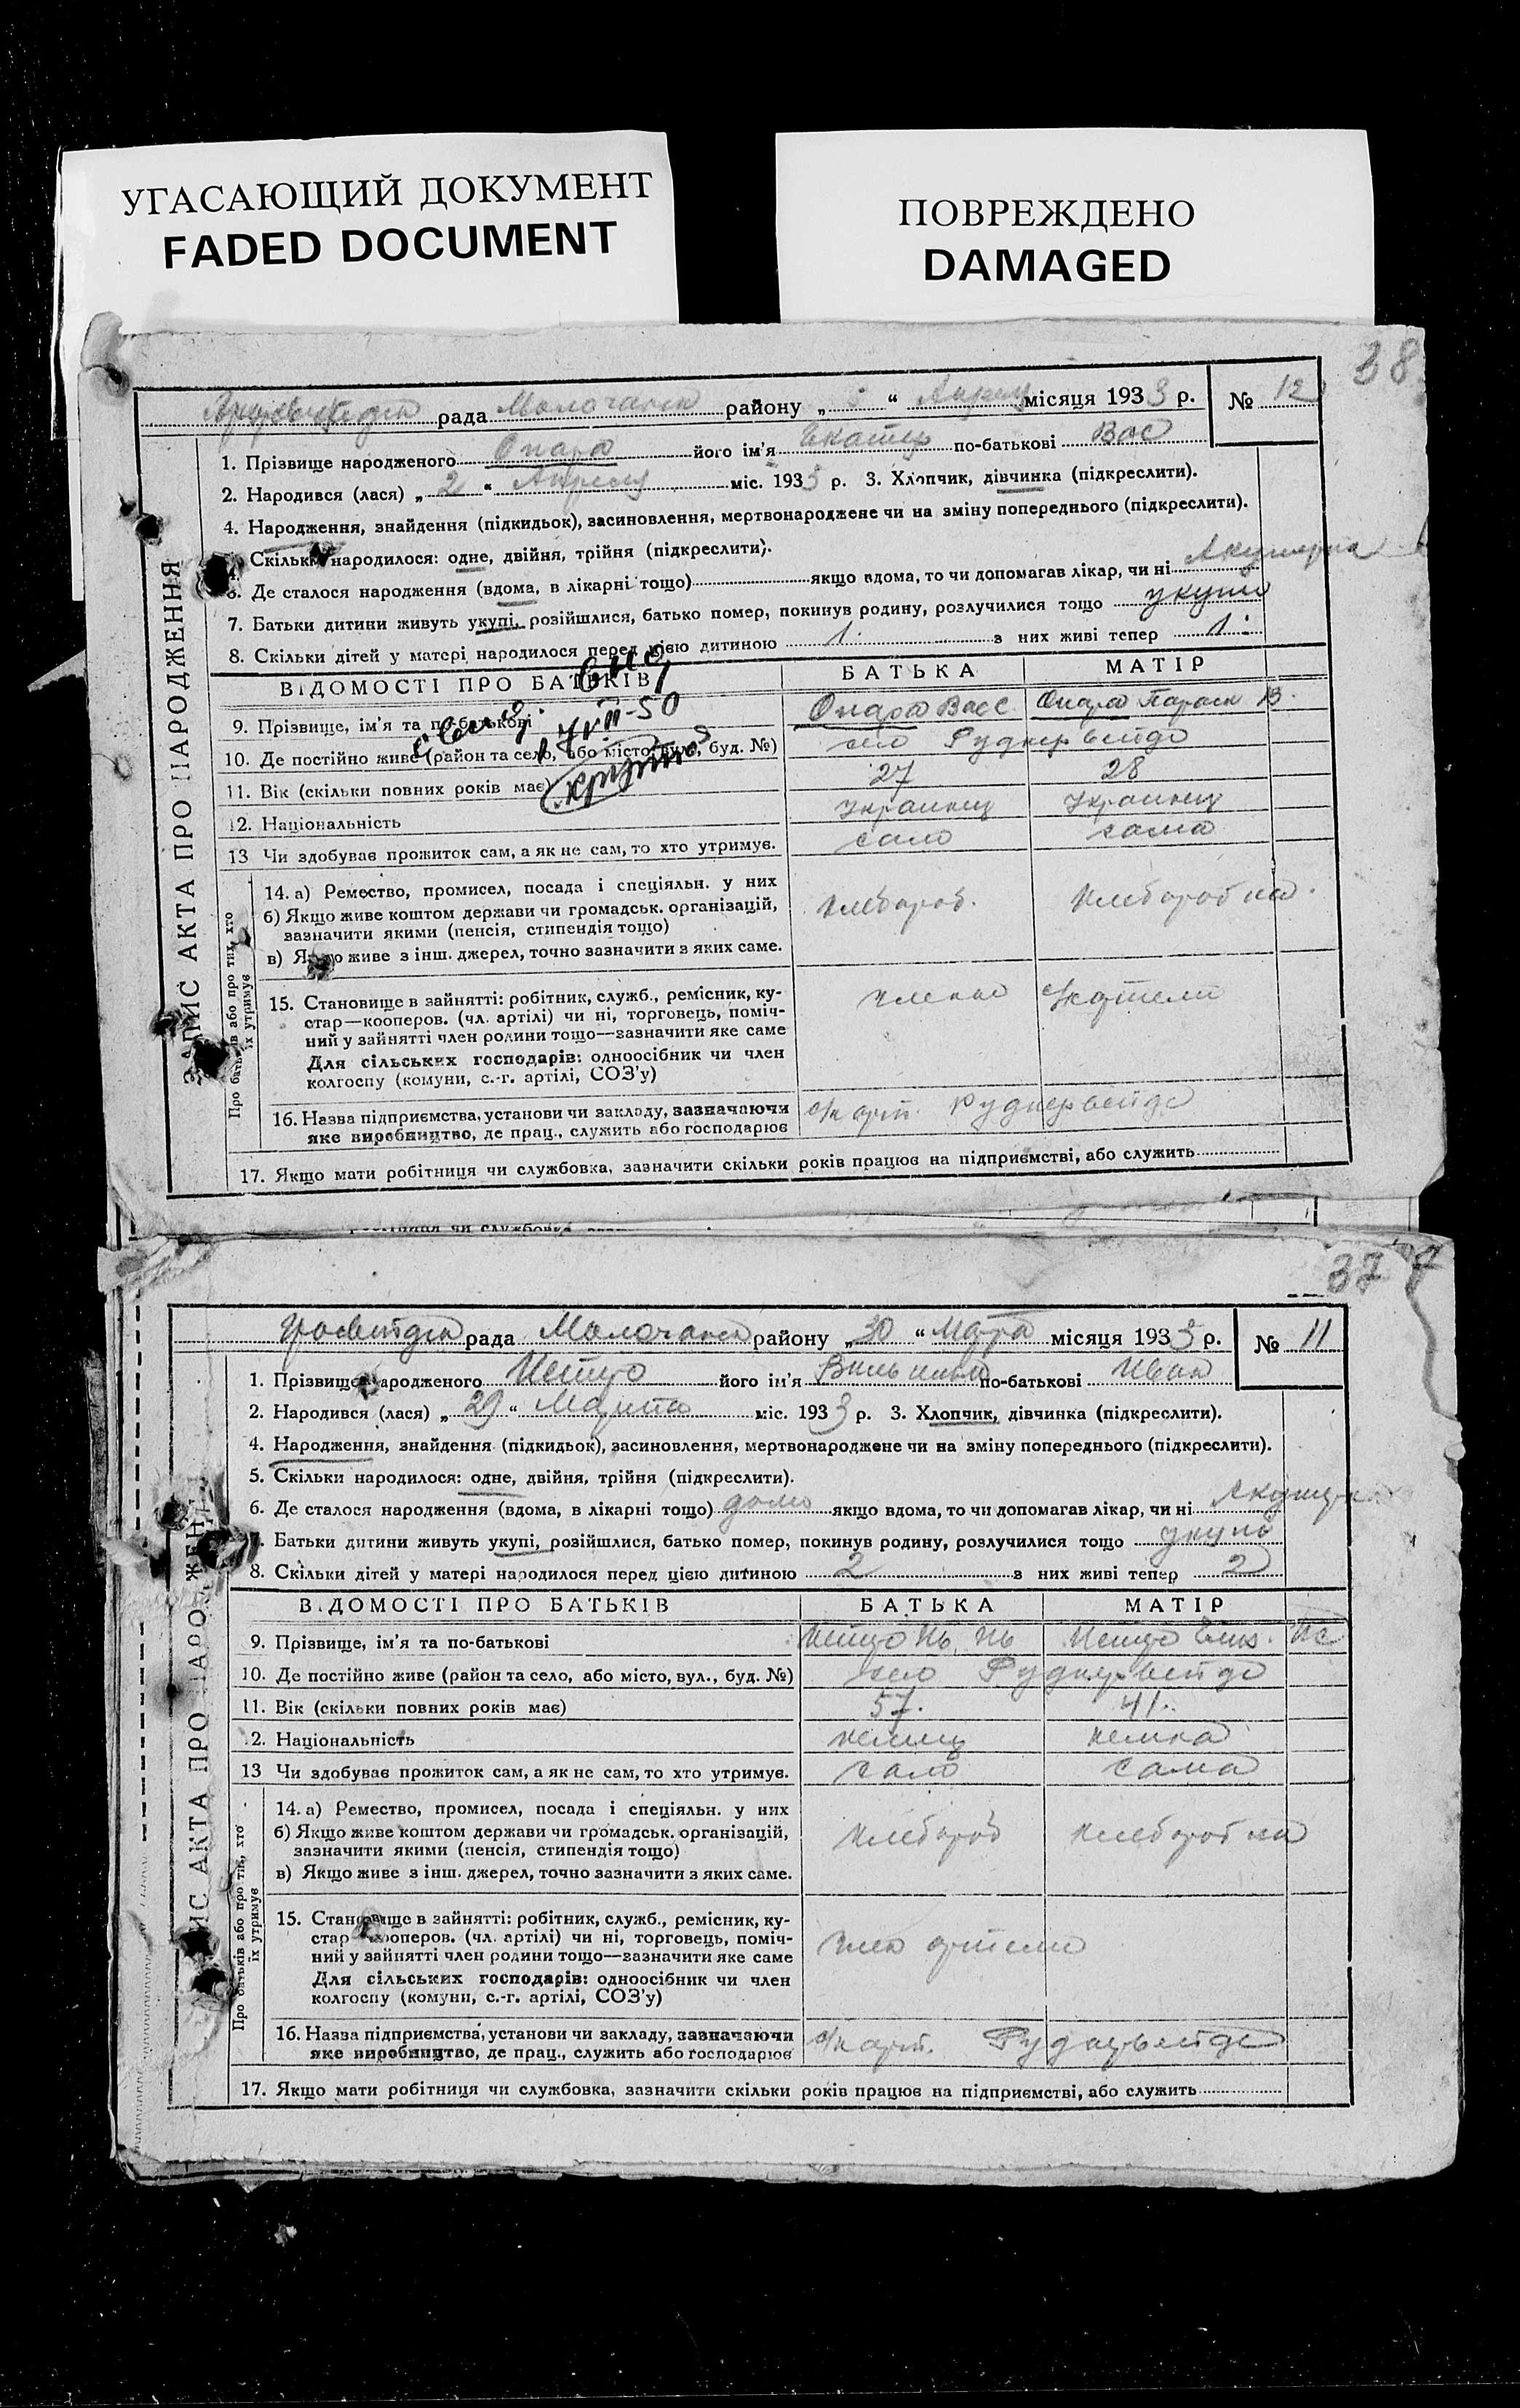 УГАСАЮЩИЙ ДОКУМЕНТ
FADED DOCUMENT
ПОВРЕЖДЕНО
DAMAGED
38
рада Молочанск району „ “ Апрель місяця 1933 р. № 12
ЗАПИС АКТА ПРО НАРОДЖЕННЯ
1. Прізвище народженого Опара його ім'я Екатер по-батькові Вас
2. Народився (лася) „ 2 “ Апреля міс. 1933 р. 3. Хлопчик, дівчинка (підкреслити).
4. Народження, знайдення (підкидьок), засиновлення, мертвонароджене чи на зміну попереднього (підкреслити).
Скільки народилося: одне, двійня, трійня (підкреслити).
6. Де сталося народження (вдома, в лікарні тощо) якщо вдома, то чи допомагав лікар, чи ні Акушерка
7. Батьки дитини живуть укупі, розійшлися, батько помер, покинув родину, розлучилися тощо укупи
8. Скільки дітей у матері народилося перед цією дитиною 1. з них живі тепер 1
ВІДОМОСТІ ПРО БАТЬКІВ БАТЬКА МАТІР
9. Прізвище, ім'я та по-батькові Опара Вас С. Опара Параск В.
10. Де постійно живе (район та село, або місто, вул., буд. №) село Руднервейде
11. Вік (скільки повних років має) 27 28
12. Національність Украинец Украинец
13 Чи здобуває прожиток сам, а як не сам, то хто утримує. само сама
Про батьків або про тих, хто їх утримує
14. а) Ремество, промисел, посада і спеціяльн. у них
б) Якщо живе коштом держави чи громадськ. організацій,
зазначити якими (пенсія, стипендія тощо)
Хлебороб. Хлеборобка.
в) Якщо живе з інш. джерел, точно зазначити з яких саме.
15. Становище в зайнятті: робітник, служб., ремісник, ку-
стар—кооперов. (чл. артілі) чи ні, торговець, поміч-
ний у зайнятті член родини тощо—зазначити яке саме
Для сільських господарів: одноосібник чи член
колгоспу (комуни, с.-г. артілі, СОЗ'у)
16. Назва підприємства, установи чи закладу, зазначаючи
яке виробництво, де прац., служить або господарює
с/х арт. Руднервейде
17. Якщо мати робітниця чи службовка, зазначити скільки років працює на підприємстві, або служить
37
рада Молочанск району „30 “ Марта місяця 1933 р. № 11
1. Прізвище народженого його ім'я по-батькові Иван
2. Народився (лася) „ 29 “ Марта міс. 1933 р. 3. Хлопчик, дівчинка (підкреслити).
4. Народження, знайдення (підкидьок), засиновлення, мертвонароджене чи на зміну попереднього (підкреслити).
5. Скільки народилося: одне, двійня, трійня (підкреслити).
6. Де сталося народження (вдома, в лікарні тощо) дома якщо вдома, то чи допомагав лікар, чи ні
Батьки дитини живуть укупі, розійшлися, батько помер, покинув родину, розлучилися тощо укупо
8. Скільки дітей у матері народилося перед цією дитиною 2 з них живі тепер 2
ВІДОМОСТІ ПРО БАТЬКІВ БАТЬКА МАТІР
9. Прізвище, ім'я та по-батькові
10. Де постійно живе (район та село, або місто, вул., буд. №) село Руднервейде
11. Вік (скільки повних років має) 57. 41.
2. Національність немец немка
13 Чи здобуває прожиток сам, а як не сам, то хто утримує. само сама
Про батьків або про тих, хто їх утримує
14. а) Ремество, промисел, посада і спеціяльн. у них
б) Якщо живе коштом держави чи громадськ. організацій,
зазначити якими (пенсія, стипендія тощо)
Хлебороб Хлеборобка
в) Якщо живе з інш. джерел, точно зазначити з яких саме.
15. Становище в зайнятті: робітник, служб., ремісник, ку-
стар—кооперов. (чл. артілі) чи ні, торговець, поміч-
ний у зайнятті член родини тощо—зазначити яке саме
член артели
Для сільських господарів: одноосібник чи член
колгоспу (комуни, с.-г. артілі, СОЗ'у)
16. Назва підприємства, установи чи закладу, зазначаючи
яке виробництво, де прац., служить або господарює
с/х арт. Руднервейде
17. Якщо мати робітниця чи службовка, зазначити скільки років працює на підприємстві, або служить